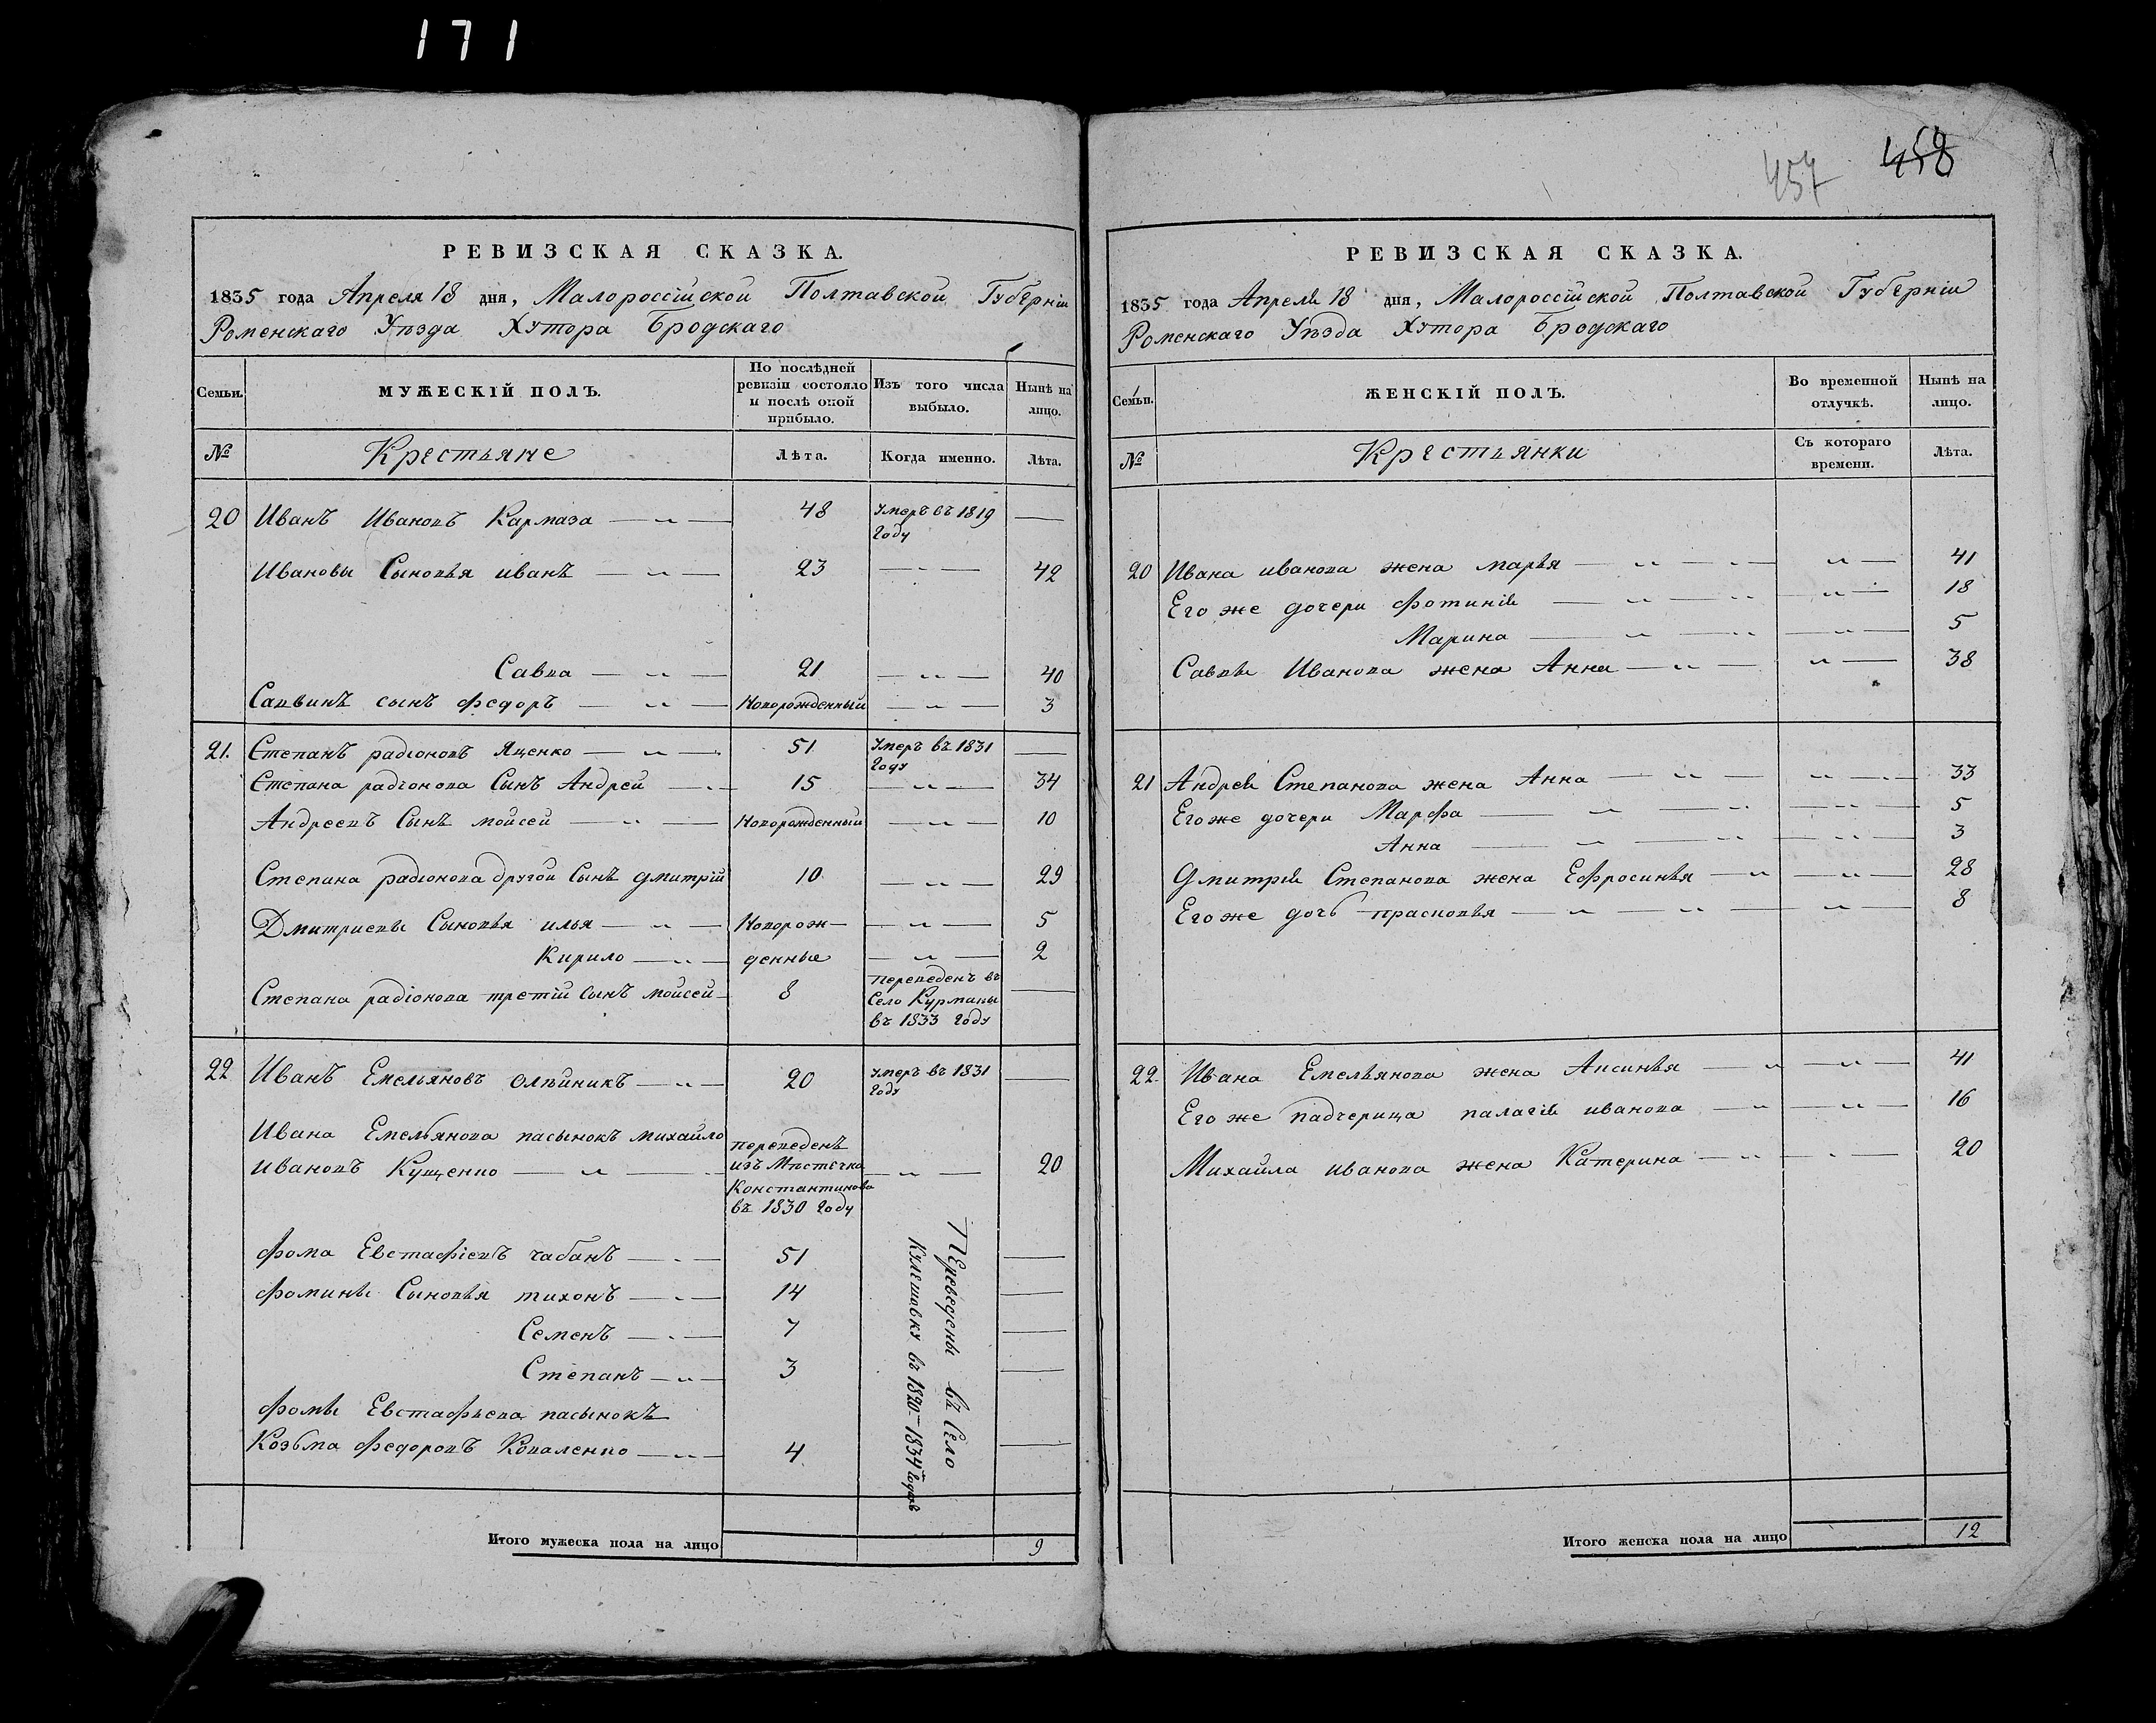 171
РЕВИЗСКАЯ СКАЗКА.
1835 года Апреля 18 дня, Малороссійской Полтавской Губерніи
Роменскаго Уѣзда Хутора Бродскаго
Семьи.
МУЖЕСКІЙ ПОЛЪ.
По послѣдней ревизіи состояло и послѣ оной прибыло.
Изъ того числа выбыло.
Нынѣ на лицо.
№
Крестьяне
Лѣта.
Когда именно.
Лѣта.
20 Иванъ Ивановъ Кармаза — „ — 48 Умеръ въ 1819 —
Году
Ивановы Сыновья иванъ — „ — 23 — „ — 42
Савва — „ — 21 — „ — 40
Саввинъ сынъ федоръ — „ — Новорожденный — „ — 3
21. Степанъ радіоновъ Яценко — „ — 51 Умеръ въ 1831 —
Году
Степана радіонова Сынъ Андрей — „ — 15 — „ — 34
Андреевъ Сынъ мойсей — „ — Новорожденный — „ — 10
Степана радіонова другой Сынъ дмитрій 10 — „ — 29
Дмитриевы Сыновья илья — „ — Новорож— — „ — 5
Кирило — „ — денные — „ — 2
Степана радіонова третій сынъ мойсей — 8 переведенъ въ —
Село Курманы
въ 1833 Году
22 Иванъ Емельяновъ олѣйникъ — „ — 20 Умеръ въ 1831 —
Году
Ивана Емельянова пасынокъ михайло переведенъ
ивановъ Кущенко — „ — изъ Мѣстечка — „ — 20
Константинова
въ 1830 Году
фома Евстафіевъ чабанъ — „ — 51 —
фомины Сыновья тихонъ — „ — 14 —
Семенъ — „ — 7 —
Степанъ — „ — 3 —
фомы Евстафьева пасынокъ
Козьма федоровъ Коваленко — „ — 4 —
Переведены въ Село
Кулешовку въ 1820–1834 Годахъ
Итого мужеска пола на лицо 9
457 458
РЕВИЗСКАЯ СКАЗКА.
1835 года Апреля 18 дня, Малороссійской Полтавской Губерніи
Роменскаго Уѣзда Хутора Бродскаго
Семьи.
ЖЕНСКІЙ ПОЛЪ.
Во временной отлучкѣ.
Нынѣ на лицо.
№
Крестьянки
Съ котораго времени.
Лѣта.
20 Ивана иванова жена марья — „ — „ — 41
Его же дочери фотинія — „ — „ — 18
Марина — „ — „ — 5
Саввы Иванова жена Анна — „ — „ — 38
21 Андрея Степанова жена Анна — „ — „ — 33
Его же дочери Марфа — „ — „ — 5
Анна — „ — „ — 3
Дмитрія Степанова жена Ефросинья — „ — „ — 28
Его же дочь прасковья — „ — „ — 8
22. Ивана Емельянова жена Аксинья — „ — „ — 41
Его же падчерица палагія иванова — „ — „ — 16
Михайла иванова жена Катерина — „ — „ — 20
Итого женска пола на лицо 12